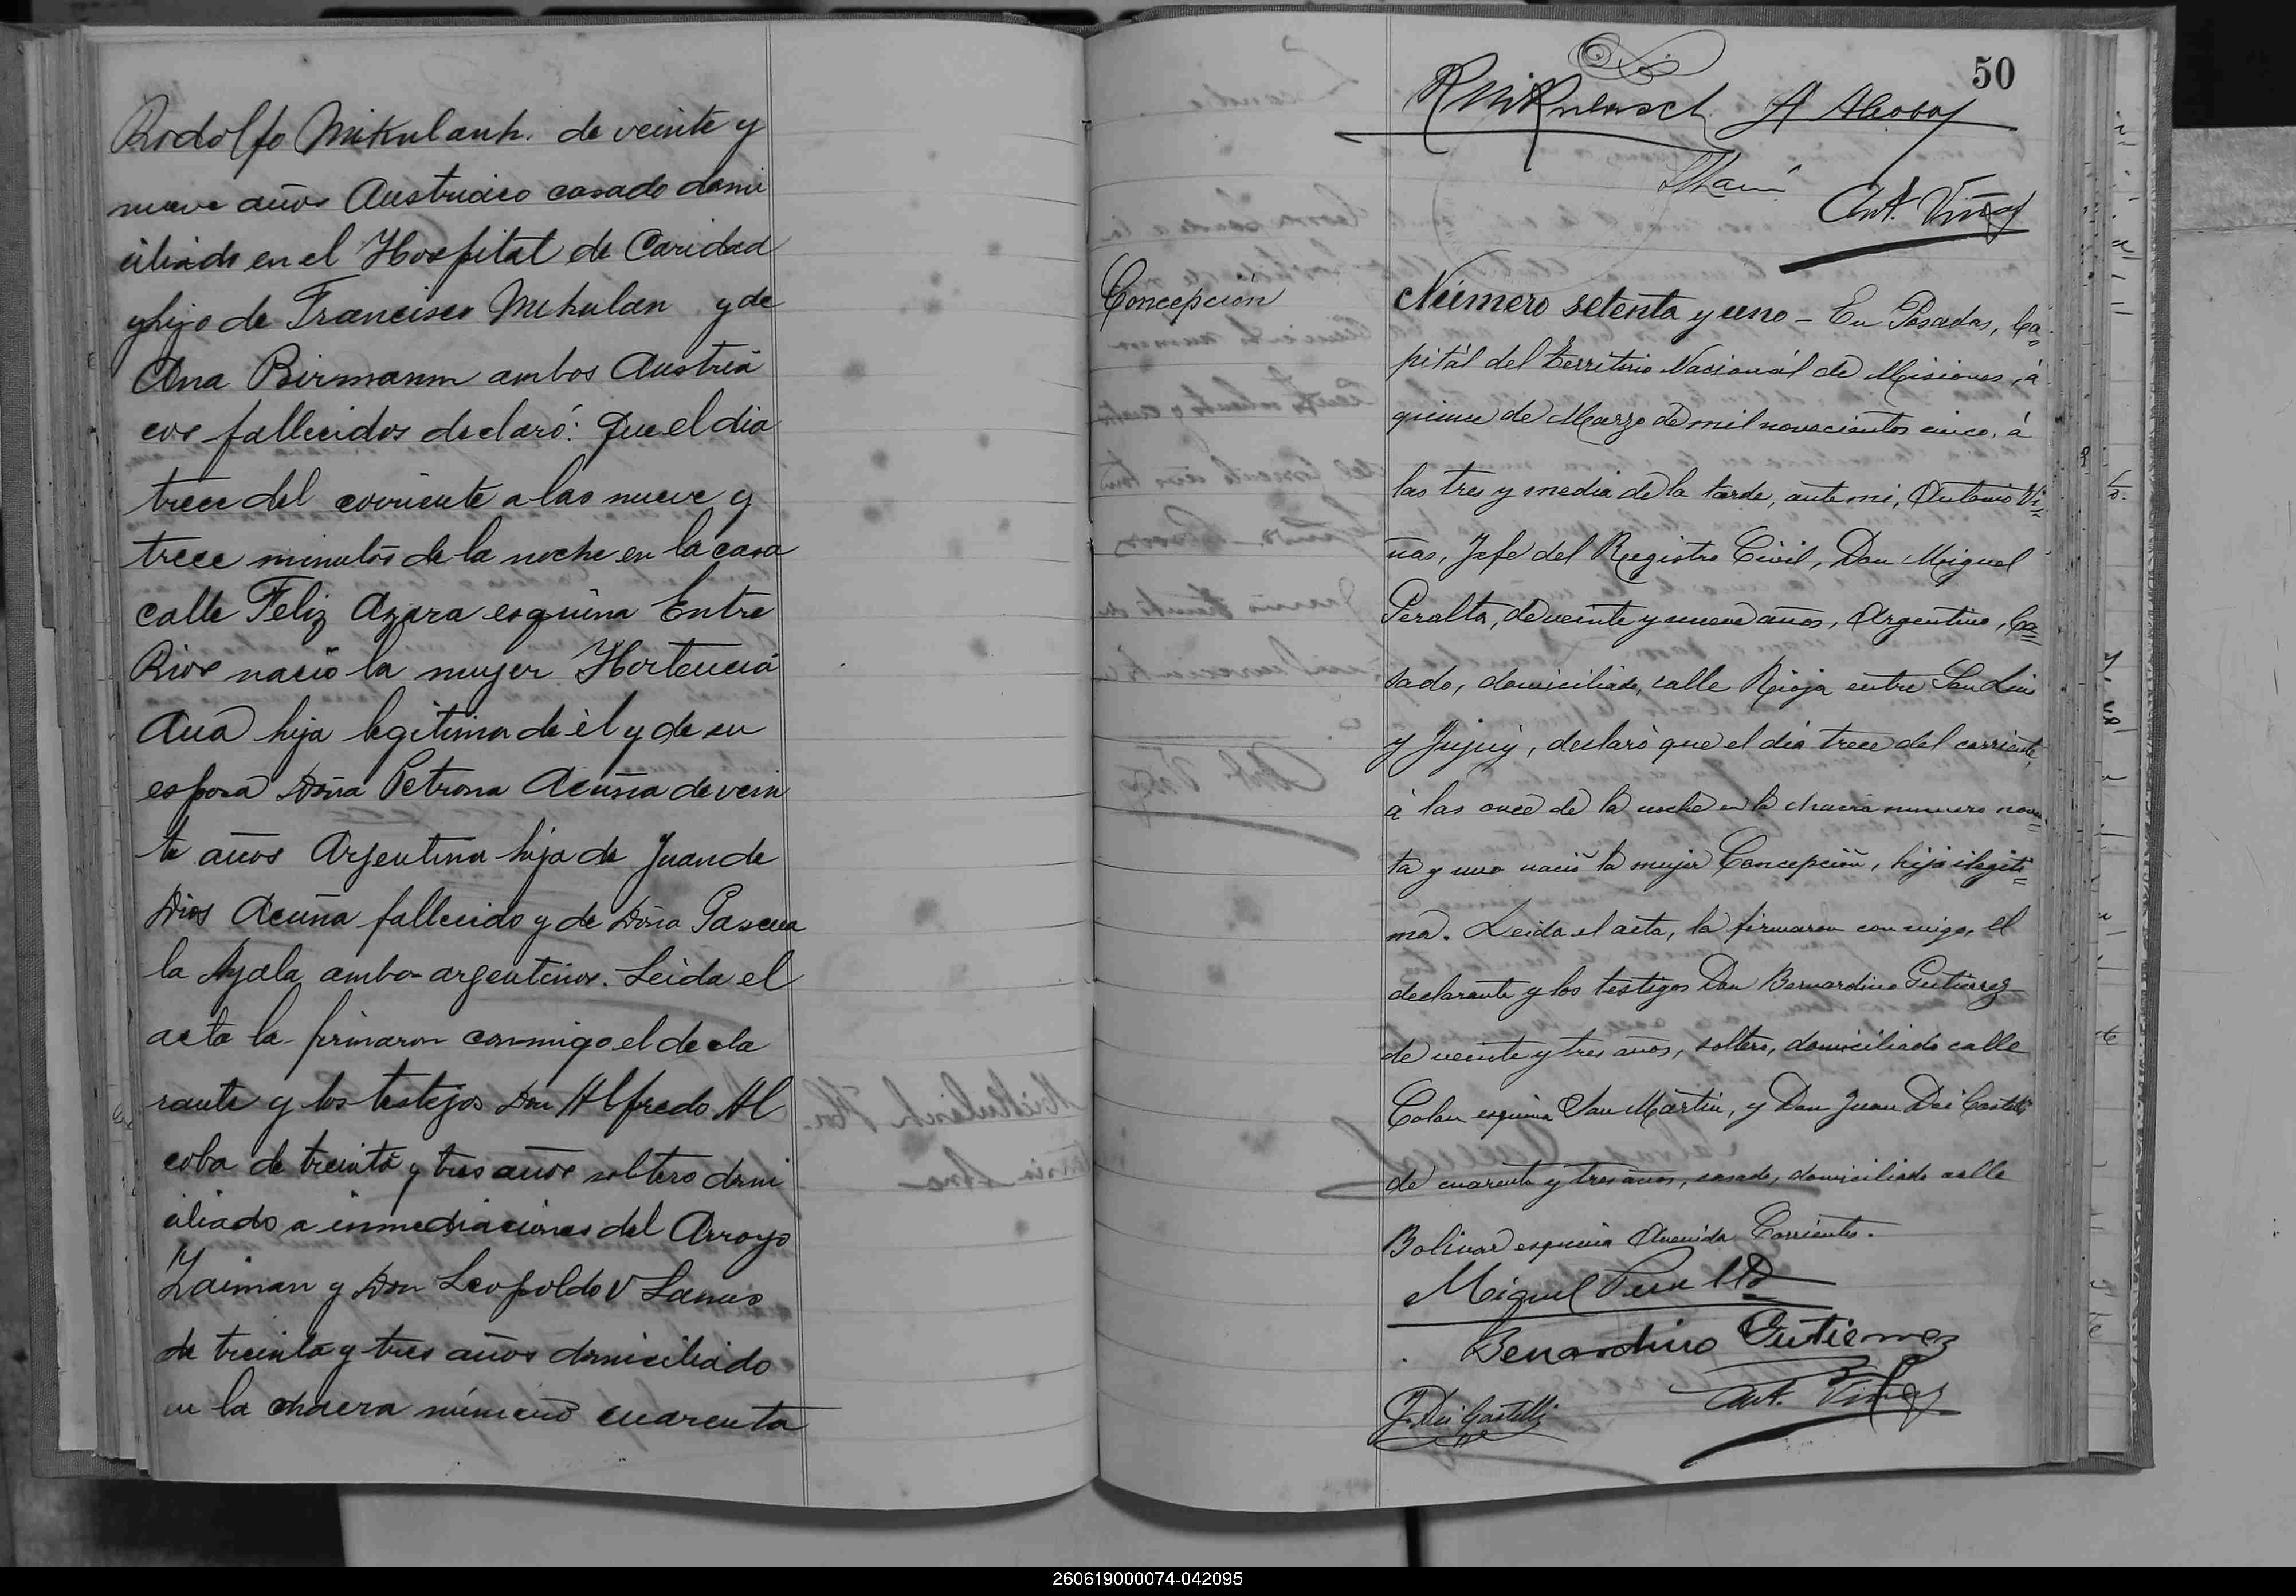 Rodolfo Mikulanh. de veinte y
nueve años Austriaco casado domi
ciliado en el Hospital de Caridad
y hijo de Francisco Mikulan y de
Ana Birmann ambos Austria
cos fallecidos declaró: Que el dia
trece del corriente a las nueve y
trece minutos de la noche en la casa
calle Feliz Azara esquina Entre
Rios nació la mujer Hortencia
Ana hija legitima de èl y de su
esposa Doña Petrona Acuña de vein
te años Argentina hija de Juan de
Dios Acuña fallecido y de Doña Pascua
la Ayala ambos argentinos. Leida el
acta la firmaron conmigo el decla
rante y los testigos Don Alfredo Al
coba de treinta y tres años soltero domi
ciliado a inmediaciones del Arroyo
Zaiman y Don Leopoldo V Lanus
de treinta y tres años domiciliado
en la chacra número cuarenta
50
A Alcoba
Ant. Viñas
Concepción
Número setenta y uno - En Posadas, Ca=
pitál del Territorio Nacionál de Misiones, á
quince de Marzo de mil novecientos cinco, á
las tres y media de la tarde, ante mi, Antonio Vi=
ñas, Jefe del Registro Civil, Don Miguel
Peralta, de veinte y nueve años, Argentino, Ca=
sado, domiciliado, calle Rioja entre San Luis
y Jujuy, declaró que el día trece del corriente,
á las once de la noche en la chacra numero noven=
ta y uno nació la mujer Concepción, hija ilegiti=
ma. Leida el acta, la firmaron conmigo, el
declarante y los testigos Don Bernardino Gutierrez
de veinte y tres años, soltero, domiciliado calle
Colon esquina San Martin, y Don Juan Dei Castelli
de cuarenta y tres años, casado, domiciliado calle
Bolivar esquina Avenida Corrientes.
Miguel Peralta
Benardino Gutierrez
J. Dei Castelli
Ant. Viñas
260619000074-042095